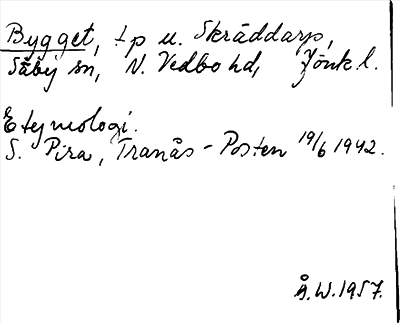 Bygget, tp u. Skräddarp,
Säby sn, N. Vedbo hd, Jönk l.
Etymologi.
S. Pira, Tranås-Posten 19/6 1942.
Å.W.1957.